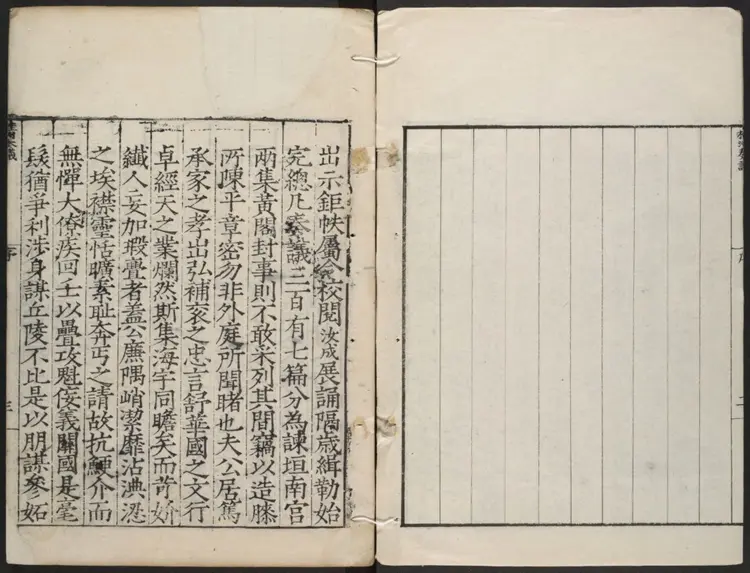 出示鉅帙屬令校閱汝成展誦隔歳緝勒始
完總凡奏議三百有七篇分為諫垣南宮
兩集黃閣封事則不敢采列其間竊以造膝
所陳平章密勿非外庭所聞睹也夫公居篤
承家之孝出弘補袞之忠言舒華國之文行
卓經天之業爛然斯集海宇同瞻矣而苛嬌
纖人妄加瑕舋者蓋公廉隅峭潔靡沾淟涊
之埃襟靈恬曠素恥奔丐之請故抗鯁介而
無憚大僚疾回壬以疊攻魁佞義關國是毫
髮猶爭利涉身謀丘陵不比是以朋謀參妬
序
三